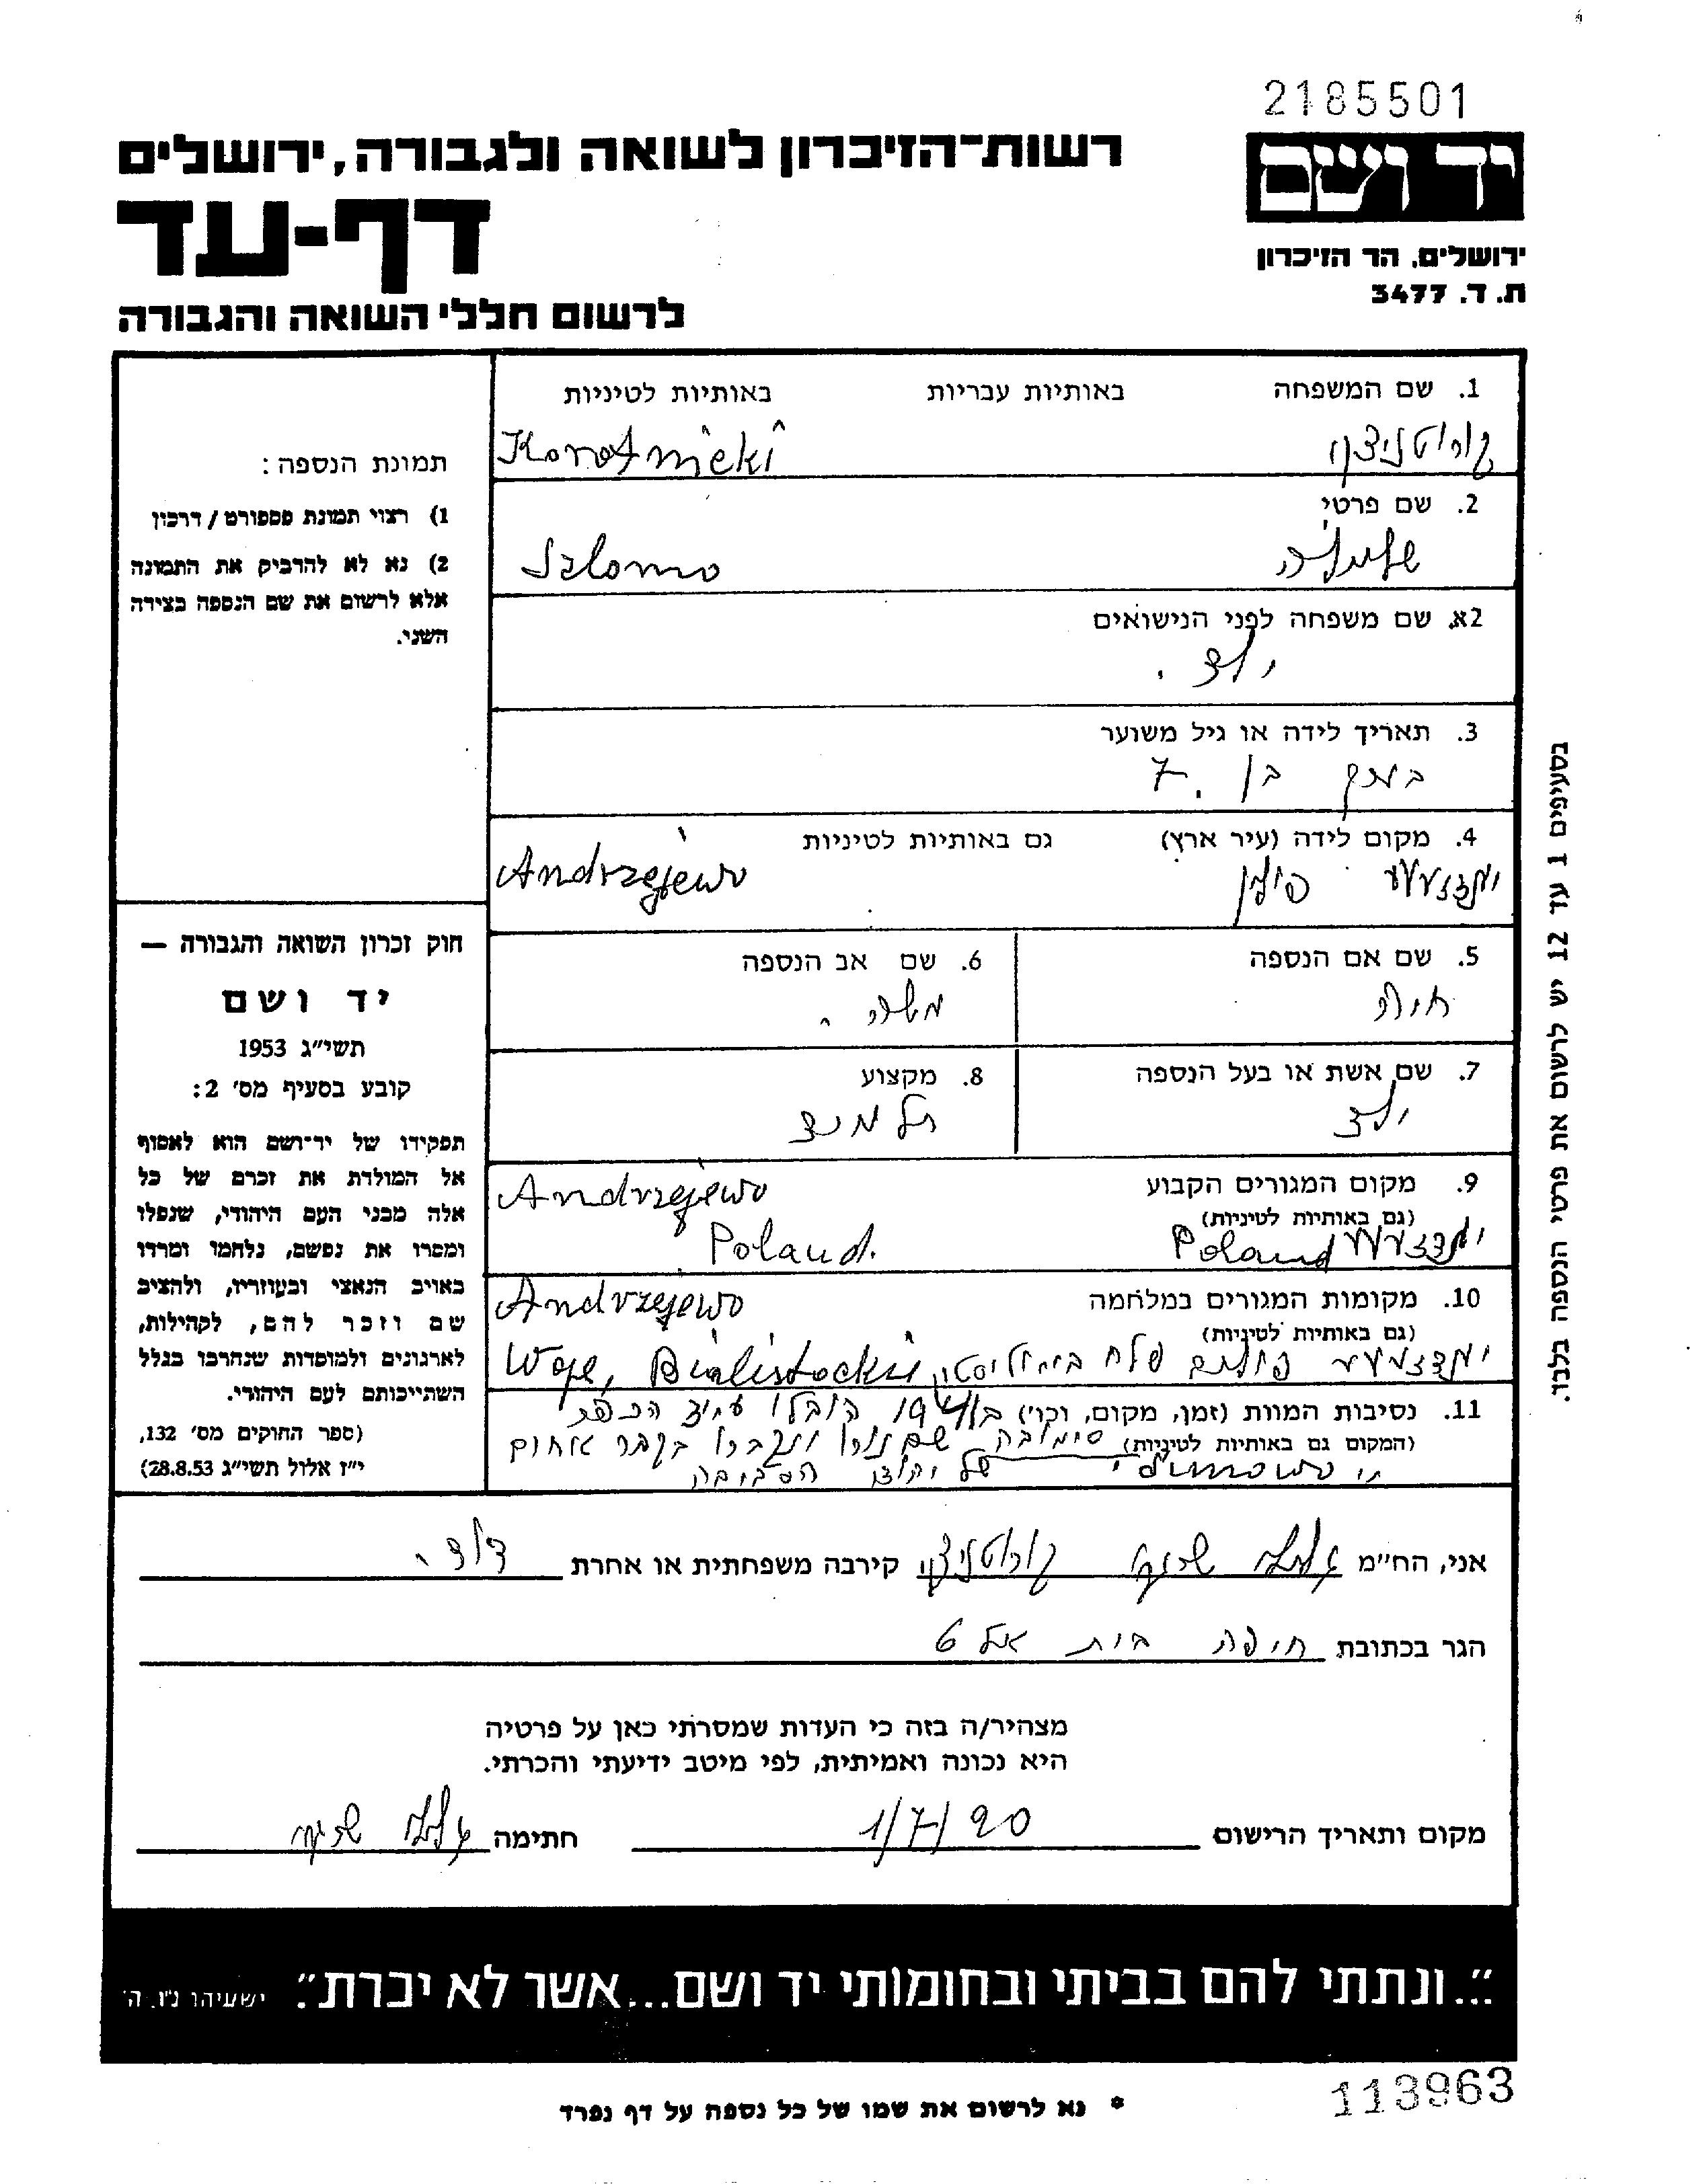 2185501
יד ושם
רשות־הזיכרון לשואה ולגבורה, ירושלים
דף-עד
לרשום חללי השואה והגבורה
ירושלים, הר הזיכרון
ת. ד. 3477
1. שם המשפחה באותיות עבריות באותיות לטיניות
Korotnicki
2. שם פרטי
שלמה Szlomo
2א. שם משפחה לפני הנישואים
ילד.
3. תאריך לידה או גיל משוער
בתקף בן 7.
4. מקום לידה (עיר ארץ) גם באותיות לטיניות
פולין Andrzejewo
5. שם אם הנספה
חיה
6. שם אב הנספה
משה.
7. שם אשת או בעל הנספה
ילד
8. מקצוע
תלמיד
9. מקום המגורים הקבוע
(גם באותיות לטיניות)
Andrzejewo
Poland Poland.
10. מקומות המגורים במלחמה
(גם באותיות לטיניות)
Andrzejewo
פולנים פלח ביאליסטוק, Woje, Bialistockie
11. נסיבות המוות (זמן, מקום, וכו׳) ב1941 הובלו
(המקום גם באותיות לטיניות) שם נורו ונקברו בקבר אחים
של יהודי הסביבה
תמונת הנספה:
1) רצוי תמונת פספורט / דרכון
2) נא לא להדביק את התמונה
אלא לרשום את שם הנספה בצידה
השני.
חוק זכרון השואה והגבורה —
יד ושם
תשי״ג 1953
קובע בסעיף מס׳ 2:
תפקידו של יד־ושם הוא לאסוף
אל המולדת את זכרם של כל
אלה מבני העם היהודי, שנפלו
ומסרו את נפשם, נלחמו ומרדו
באויב הנאצי ובעוזריו, ולהציב
שם וזכר להם, לקהילות,
לארגונים ולמוסדות שנחרבו בגלל
השתייכותם לעם היהודי.
(ספר החוקים מס׳ 132,
י״ז אלול תשי״ג 28.8.53)
בסעיפים 1 עד 12 יש לרשום את פרטי הנספה בלבד.
אני, הח״מ קורטניצקי קירבה משפחתית או אחרת דודי
הגר בכתובת חיפה בית אל 6
מצהיר/ה בזה כי העדות שמסרתי כאן על פרטיה
היא נכונה ואמיתית, לפי מיטב ידיעתי והכרתי.
מקום ותאריך הרישום 1/7/90 חתימה
״...ונתתי להם בביתי ובחומותי יד ושם...אשר לא יכרת״. ישעיהו נ״ו, ה׳
113963
* נא לרשום את שמו של כל נספה על דף נפרד